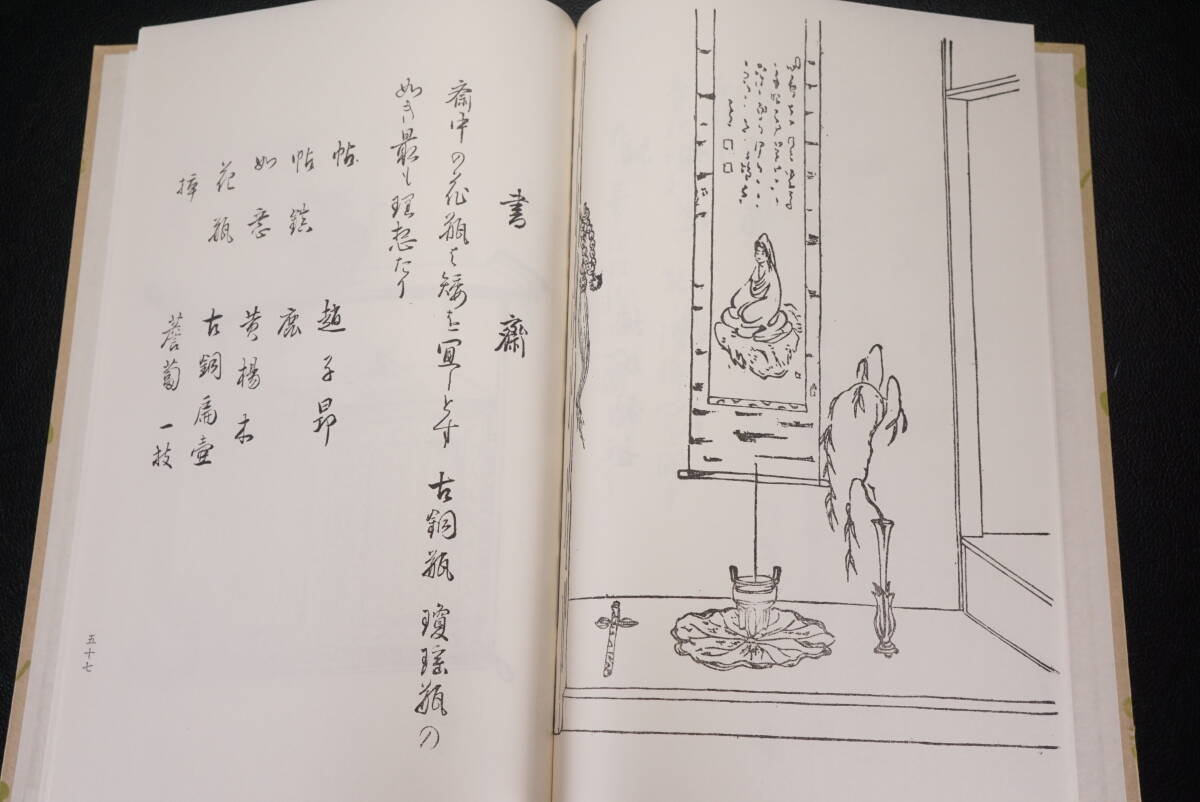 書齋
斎中の花瓶は矮を宜しとす 古銅瓶 瓊瑶瓶の
如き最も理想たり
帖 趙子昂
帖鎮 鹿
如意 黄楊木
花瓶 古銅扁壷
挿 薝蔔一枝
五十七